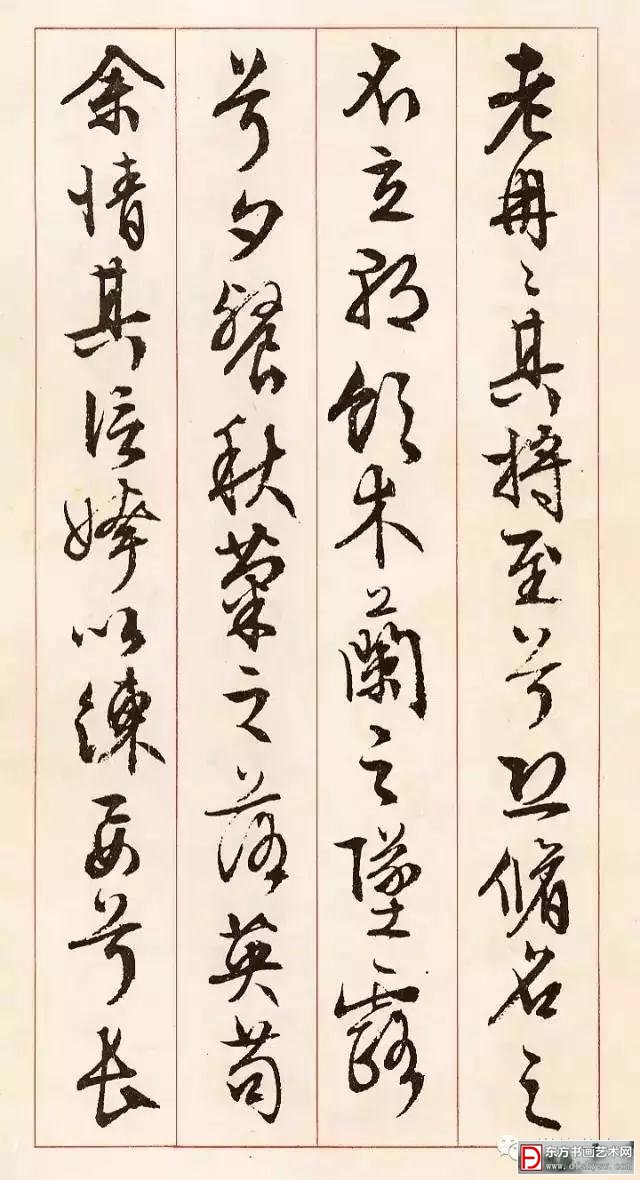 老冉〻其将至兮恐脩名之
不立朝飲木蘭之墜露
兮夕餐秋菊之落英苟
余情其信姱以練要兮長
东方书画艺术网